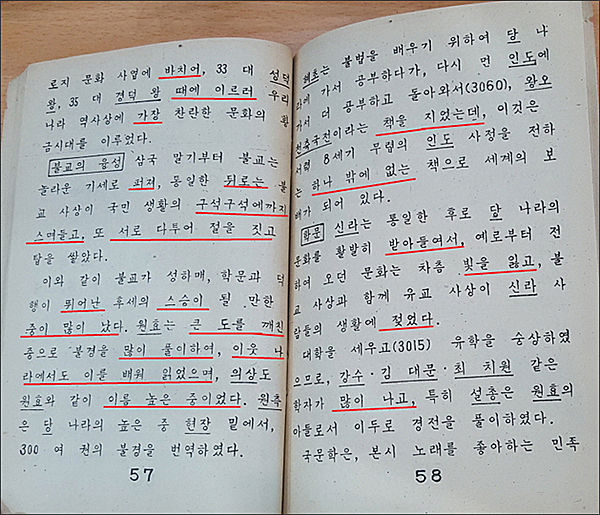 로지 문화 사업에 바치어, 33 대 성덕
왕, 35 대 경덕 왕 때에 이르러 우리
나라 역사상에 가장 찬란한 문화의 황
금시대를 이루었다.
불교의 융성 삼국 말기부터 불교는
놀라운 기세로 퍼져, 통일한 뒤로는 불
교 사상이 국민 생활의 구석구석에까지
스며들고, 또 서로 다투어 절을 짓고
탑을 쌓았다.
이와 같이 불교가 성하매, 학문과 덕
행이 뛰어난 후세의 스승이 될 만한
중이 많이 났다. 원효는 큰 도를 깨친
중으로 불경을 많이 풀이하여, 이웃 나
라에서도 이를 배워 읽었으며, 의상도
원효와 같이 이름 높은 중이었다. 원측
은 당 나라의 높은 중 현장 밑에서,
300 여 권의 불경을 번역하였다.
57
혜초는 불법을 배우기 위하여 당 나
라에 가서 공부하다가, 다시 먼 인도에
가서 더 공부하고 돌아와서(3060), 왕오
천축국전이라는 책을 지었는데, 이것은
서력 8세기 무렵의 인도 사정을 전하
는 하나 밖에 없는 책으로 세계의 보
배가 되어 있다.
학문 신라는 통일한 후로 당 나라의
문화를 활발히 받아들여서, 예로부터 전
하여 오던 문화는 차츰 빛을 잃고, 불
교 사상과 함께 유교 사상이 신라 사
람들의 생활에 젖었다.
대학을 세우고(3015) 유학을 숭상하였
으므로, 강수·김 대문·최 치원 같은
학자가 많이 나고, 특히 설총은 원효의
아들로서 이두로 경전을 풀이하였다.
국문학은, 본시 노래를 좋아하는 민족
58